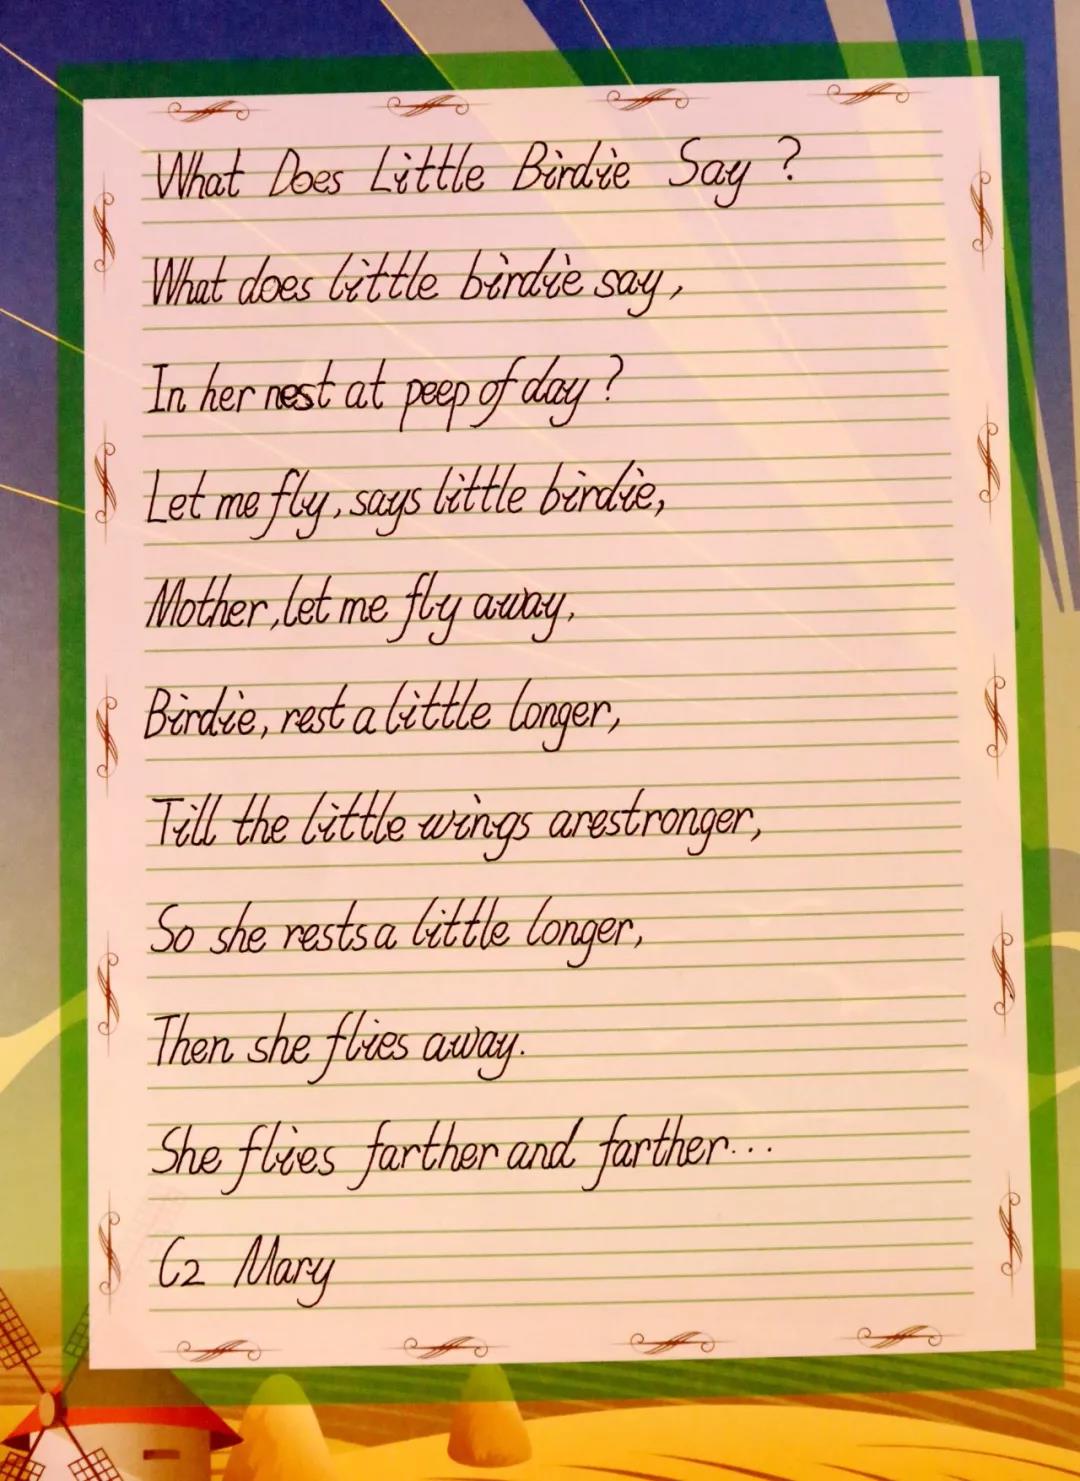 What Does Little Birdie Say ?
What does little birdie say,
In her nest at peep of day ?
Let me fly, says little birdie,
Mother, let me fly away,
Birdie, rest a little longer,
Till the little wings arestronger,
So she rests a little longer,
Then she flies away.
She flies farther and farther...
C2 Mary